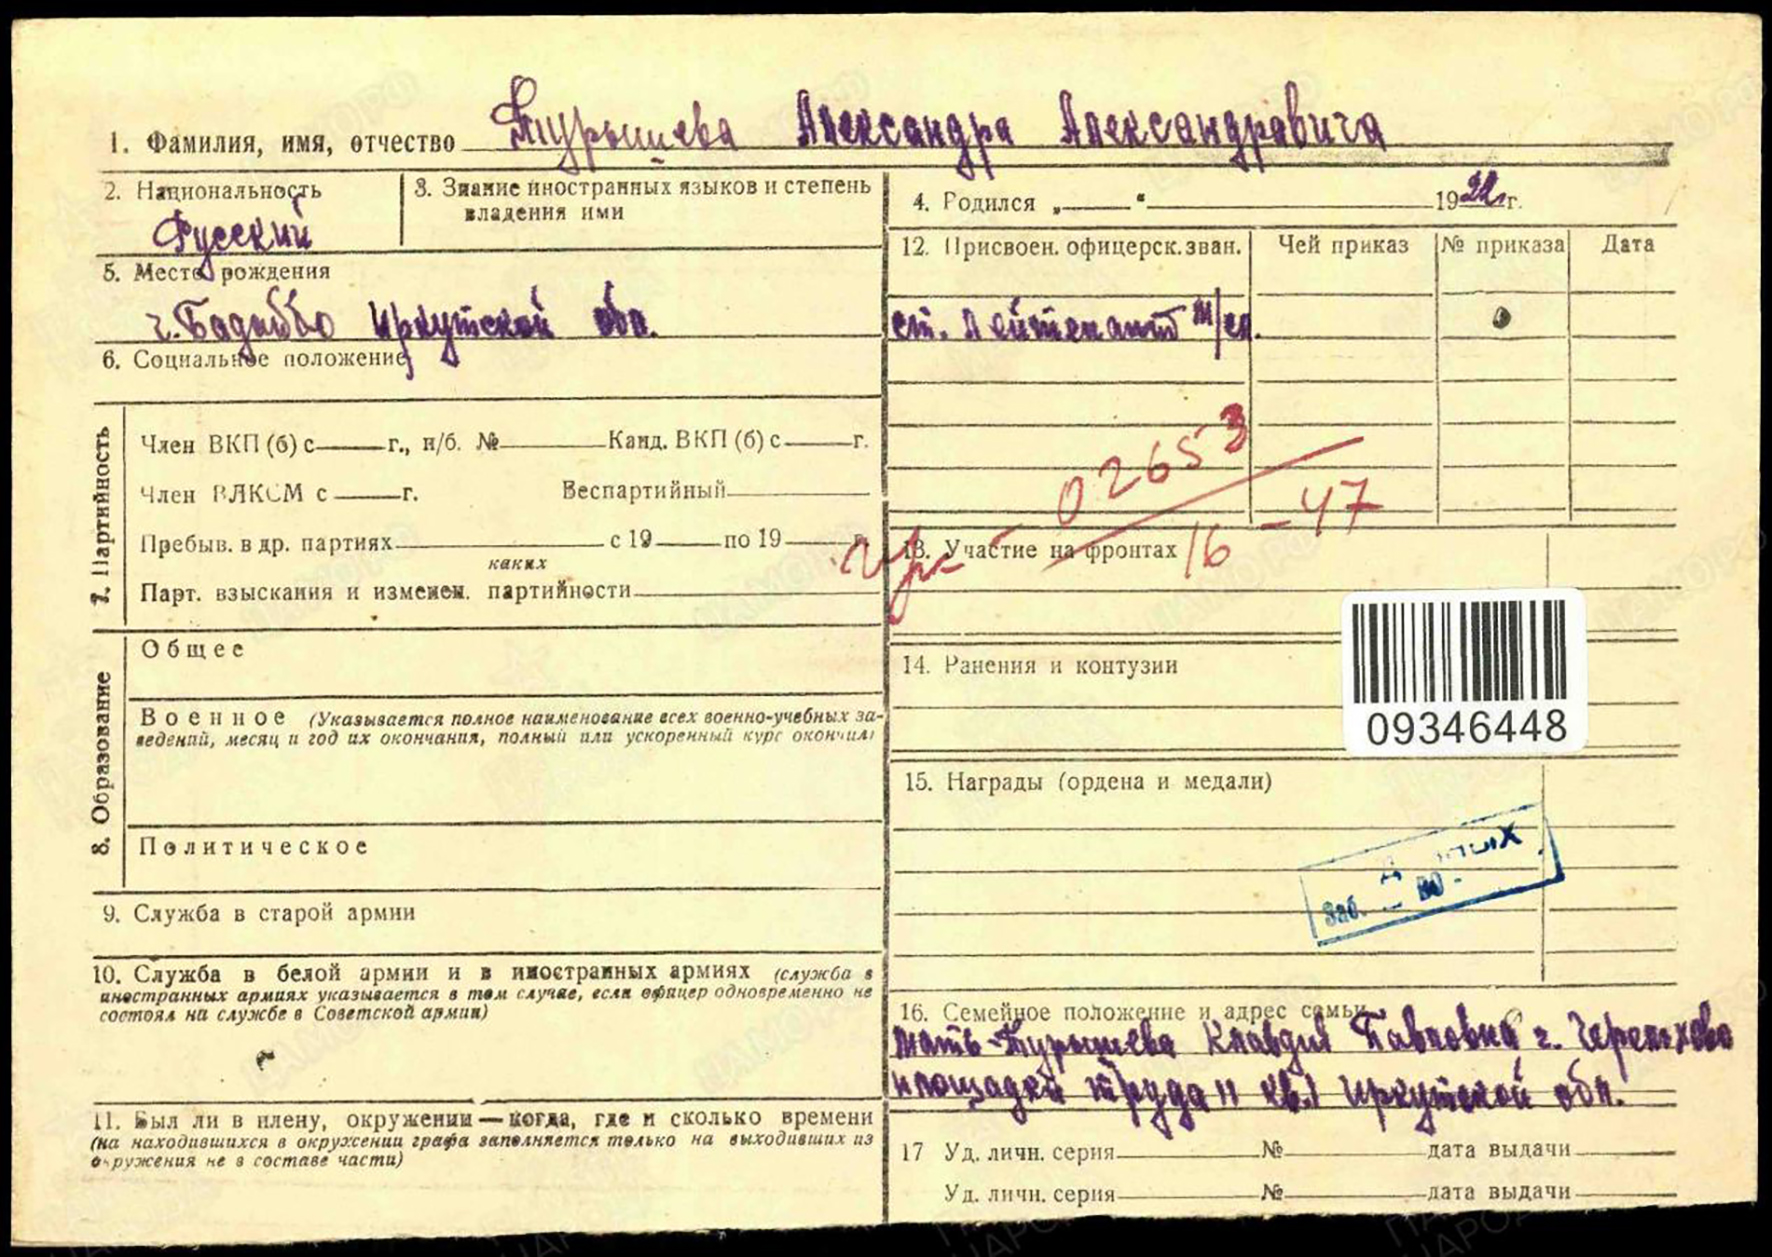 1. Фамилия, имя, отчество Турышева Александра Александравича
2. Национальность
Русский
3. Знание иностранных языков и степень
владения ими
4. Родился „ “ 1922 г.
5. Место рождения
г. Бадайбо Иркутской обл.
6. Социальное положение
7. Партийность
Член ВКП (б) с г., п/б. № Канд. ВКП (б) с г.
Член ВЛКСМ с г. Беспартийный
Пребыв. в др. партиях с 19 по 19 г.
каких
Парт. взыскания и изменен. партийности
8. Образование
Общее
Военное (Указывается полное наименование всех военно-учебных за-
ведений, месяц и год их окончания, полный или ускоренный курс окончил)
Политическое
9. Служба в старой армии
10. Служба в белой армии и в иностранных армиях (служба в
иностранных армиях указывается в том случае, если офицер одновременно не
состоял на службе в Советской армии)
11. Был ли в плену, окружении — когда, где и сколько времени
(на находившихся в окружении графа заполняется только на выходивших из
окружения не в составе части)
12. Присвоен. офицерск. зван. Чей приказ № приказа Дата
ст. лейтенант т/сл.
02653
16 - 47
13. Участие на фронтах
14. Ранения и контузии
09346448
15. Награды (ордена и медали)
Заб. ВО
16. Семейное положение и адрес семьи
мать - Турышева Клавдия Павловна г. Черемхово
площадка труда 11 кв. 1 Иркутской обл.
17 Уд. личн. серия № дата выдачи
Уд. личн. серия № дата выдачи